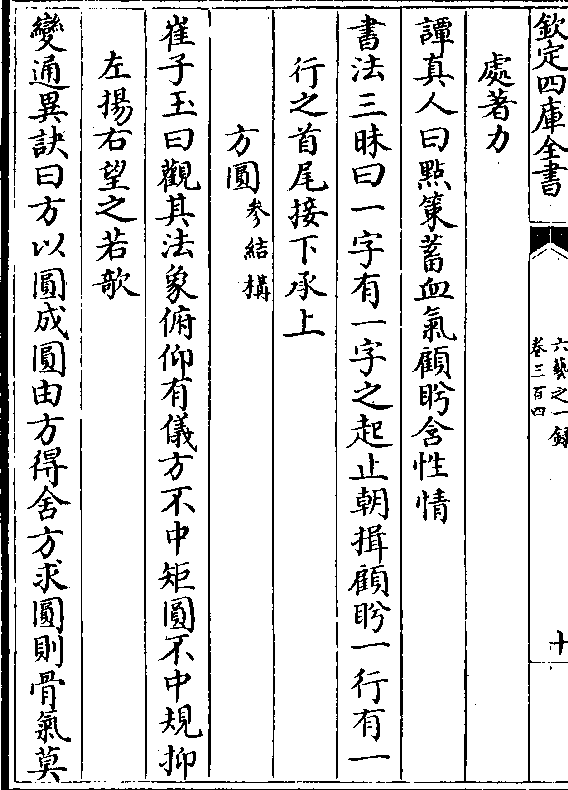 欽定四庫全書
六藝之一錄
卷三百四
十
處著力
譚真人曰點策蓄血氣顧盻含性情
書法三昧曰一字有一字之起止朝揖顧盻一行有一
行之首尾接下承上
方圓參結構
崔子玉曰觀其法象俯仰有儀方不中矩圓不中規抑
左揚右望之若欹
變通異訣曰方以圓成圓由方得舍方求圓則骨氣莫